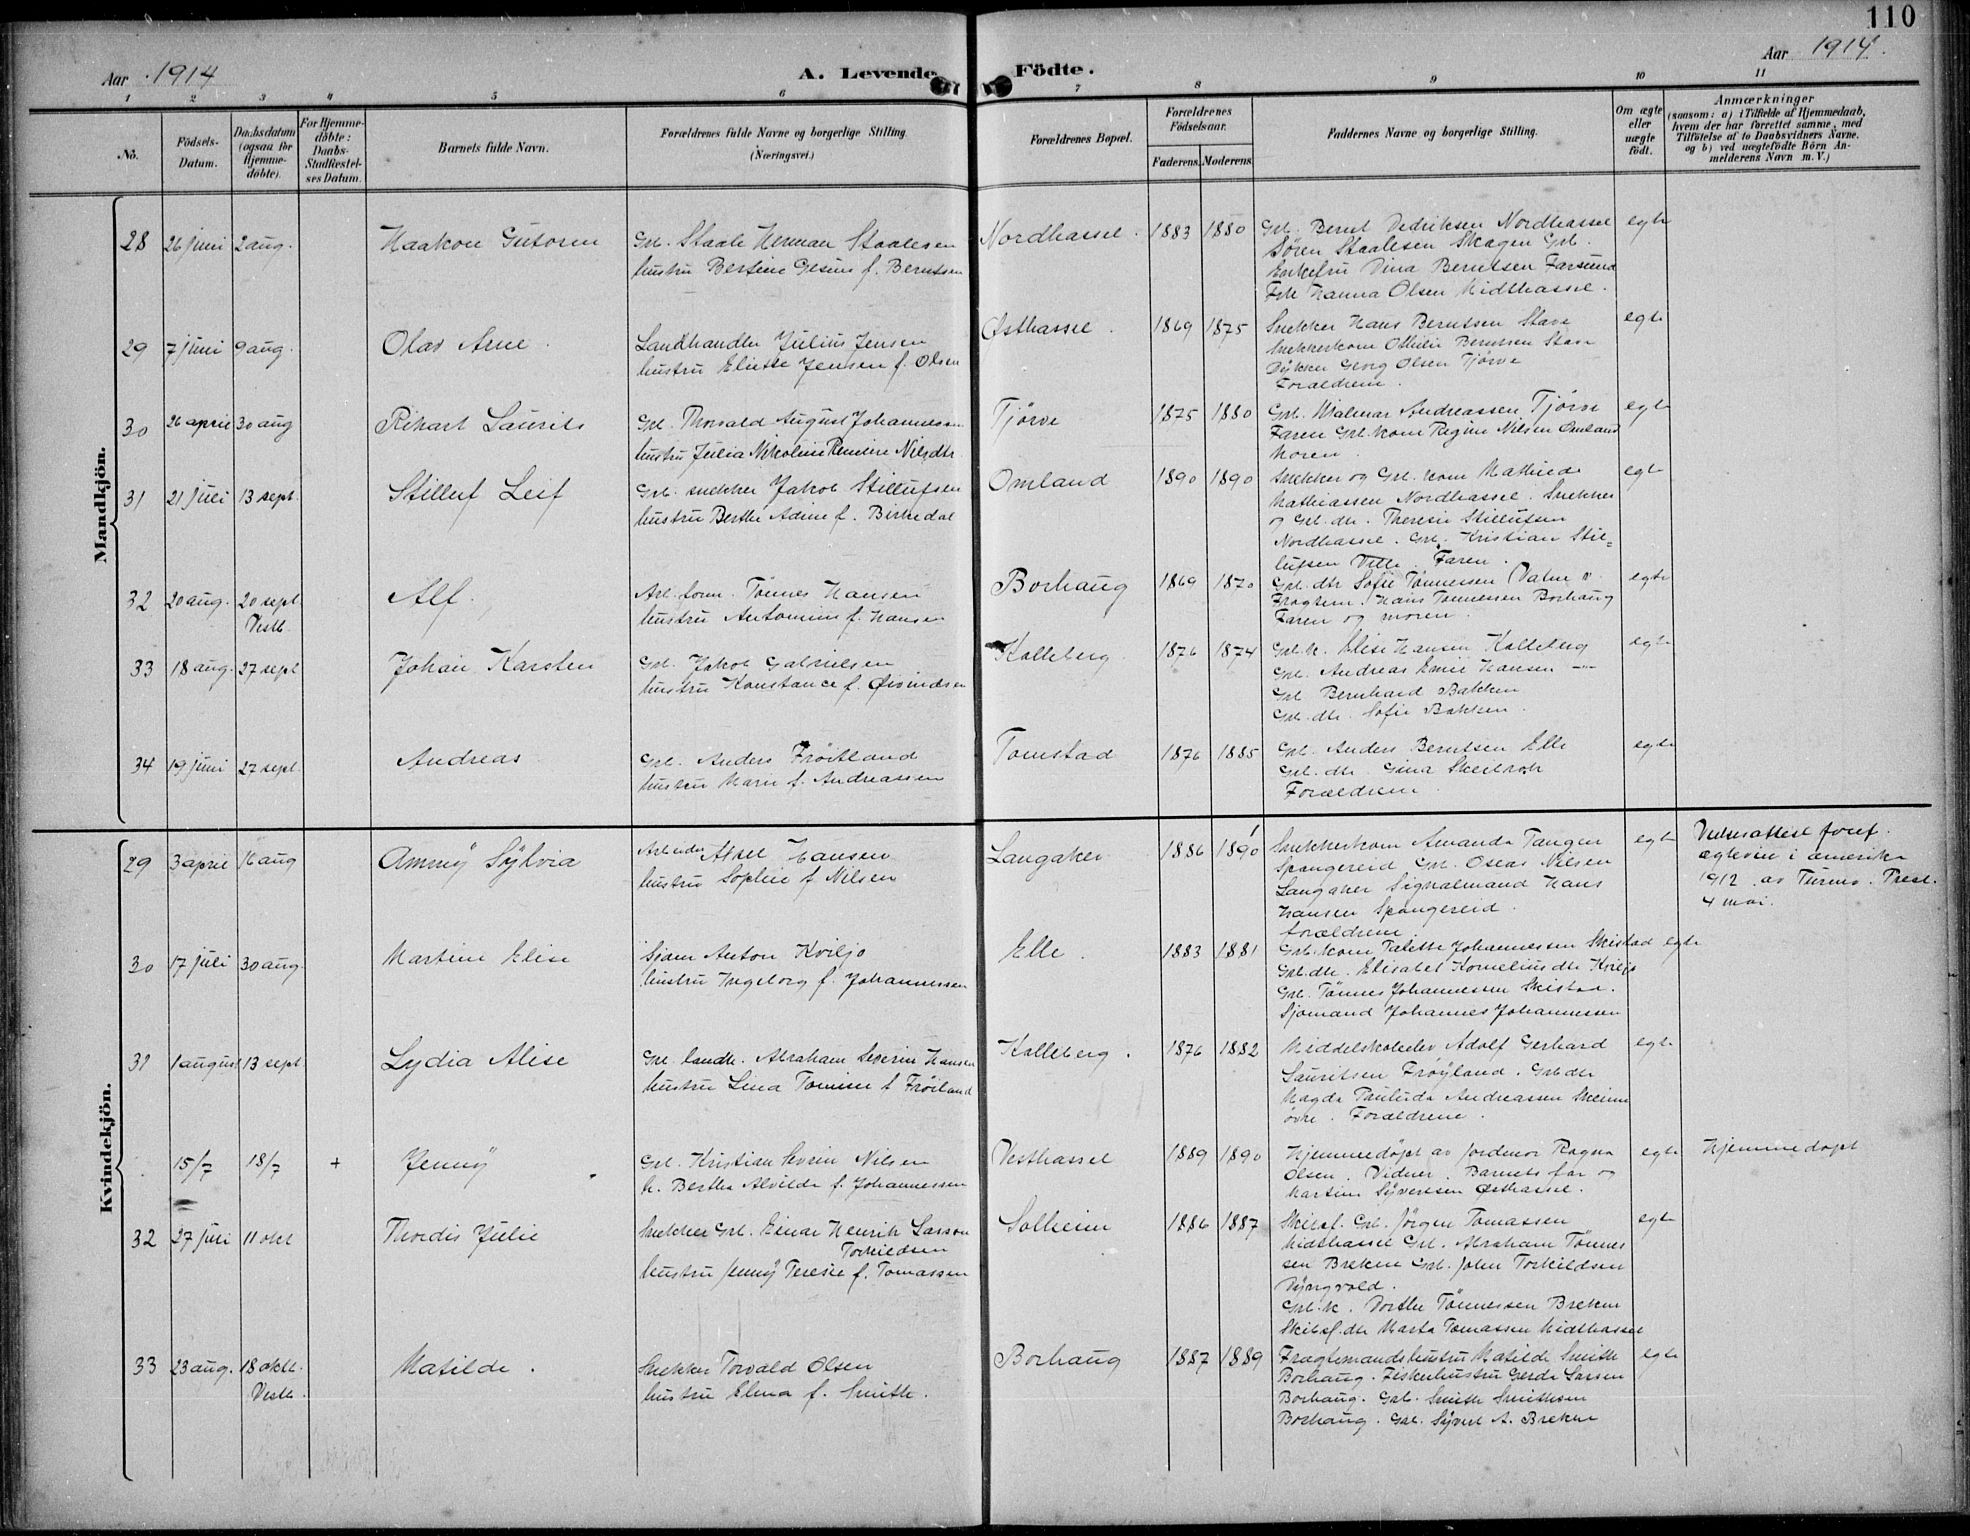 110
Aar 1914
A. Levende Födte.
Aar 1914.
1 2 3 4 5 6 7 8 9 10 11
No.
Födsels-Datum.
Daabsdatum (ogsaa for Hjemme-döbte).
For Hjemme-döbte: Daabs-Stadfæstel-ses Datum.
Barnets fulde Navn.
Forældrenes fulde Navne og borgerlige Stilling. (Næringsvei.)
Forældrenes Bopæl.
Forældrenes Födselsaar.
Faderens. Moderens.
Faddernes Navne og borgerlige Stilling.
Om ægte eller uægte födt.
Anmærkninger
(saasom: a) i Tilfælde af Hjemmedaab, hvem der har forrettet samme, med Tilföielse af to Daabsvidners Navne, og b) ved uægtefödte Börn An-melderens Navn m. V.)
Mandkjön.
28 26 juni 2 aug. Haakon Gutorm
Grb. Staale Herman Staalesen
hustru Bertine Gesine f. Berntsen
Nordhassel. 1883 1880
Grb. Bernt Dedriksen Nordhassel
Søren Staalesen Skagen Grb.
Enkefru Dina Berntsen Farsund
Frk Hanna Olsen Midthassel.
egte
29 7 juni 9 aug. Olav Arne
Landhandler Julius Jensen
hustru Eliette Jensen f. Olsen
Østhassel. 1869 1875
Snekker Hans Berntsen Stave
Snekkerkone Othilie Berntsen Stave
Dykker Georg Olsen Tjørve
Forældrene.
egte
30 26 april 30 aug Rikart Laurits
Grb. Thorvald August Johannessen
hustru Julia Nikoline Rendine Nilsdtr
Tjörve 1875 1880
Grb. Hjalmar Andreassen Tjørve
Faren Grb. kone Regine Nilsen Omland
Moren.
egte
31 21 juli 13 sept. Stilluf Leif
Grb. snekker Jakob Stillufsen
hustru Berthe Adine f. Birkedal
Omland 1890 1890
Snekker og Grb. kone Mathilde
Mathiassen Nordhassel. Snekker
og Grb. dtr. Theresie Stillufsen
Nordhassel. Grb. Kristian Stil=
lufsen Velle. Faren.
egte
32 20 aug. 20 sept Vestb. Alf.
Arb. form. Tönnes Hansen
hustru Antomine f. Hansen
Borhaug 1869 1870
Grb. dtr Sofie Tönnessen Vatne
Fragtem. Hans Tönnessen Borhaug
Faren og moren.
egte
33 18 aug. 27 sept Johan Karsten
Grb. Jakob Gabrielsen
hustru Konstance f. Øivindsen
Kalleberg 1876 1874
Grb. k. Elise Hansen Kalleberg
Grb. Andreas Emil Hansen —"—
Grb Bernhard Bakken
Grb. dtr. Sofie Bakken.
egte
34 19 juni 27 sept. Andreas
Grb. Anders Fröitland
hustru Marie f. Andreassen
Tomstad 1876 1885
Grb. Anders Berntsen Elle
Grb. dtr. Gina Skeibrok
Forældrene
egte
Kvindekjön.
29 3 april 16 aug Ammy Sylvia
Arbeider Aksel Hansen
hustru Sophie f Nilsen
Langaker 1886 1890 1
Snekkerkone Amanda Tangen
Spangereid Grb. Oscar Nilsen
Langaker Signalmand Hans
Hansen Spangereid.
forældrene.
egte
Vielsesattest foref.
egteviet i amerika
1912 av Turmo. Prest.
4 mai.
30 17 juli 30 aug. Martine Elise
Sjøm Anton Kviljo
hustru Ingeborg f. Johannessen
Elle. 1883 1881
Grb. kone Talette Johannessen Skistad
Grb. dtr. Elisabet Korneliusdtr Kviljo
Grb. Tönnes Johannessen Skistad.
Sjømand Johannes Johannessen
egte
31 1 august 13 sept Lydia Alise
Grb. landh. Abraham Severin Hansen
hustru Lina Tomine f Fröiland
Kalleberg. 1876 1882
Middelskoleelev Adolf Gerhard
Lauritsen Fröyland. Grb. dtr
Magda Paulida Andreassen Skeime
øvre. Forældrene.
egte
15/7 18/7 + Jenny
Grb. Kristian Severin Nilsen
h. Bertha Alvilde f. Johannessen
Vesthassel 1889 1890
Hjemmedøpt av jordmor Ragna
Olsen. Vidner. Barnets far og
Martin Syvertsen Østhassel.
egte
Hjemmedøpt
32 27 juli 11 okt Thordis Julie
Snekker Grb. Einar Henrik Larsson
Torkildsen
hustru Jenny Teresie f. Tomassen
Solheim 1886 1887
Skibsf. Grb. Jörgen Tomassen
Midthassel Grb. Abraham Tönnes
sen Breken Grb. John Torkildsen
Dyngvold.
Grb. k. Dorthe Tönnessen Breken
Skibsf. dtr Marta Tomassen Midthassel
egte
33 23 aug. 18 oktb. Vestb. Matilde.
Snekker Torvald Olsen
hustru Elena f. Smith.
Borhaug 1887 1889
Fragtemandshustru Matilde Smith
Borhaug. Fiskerhustru Gerda Larsen
Borhaug. Grb. Smith Smithsen
Borhaug. Grb. Syvert A. Breken
egte